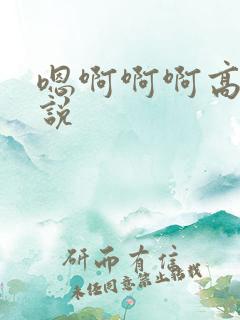 嗯啊啊啊高
說
研而有信
未经同意禁止转载